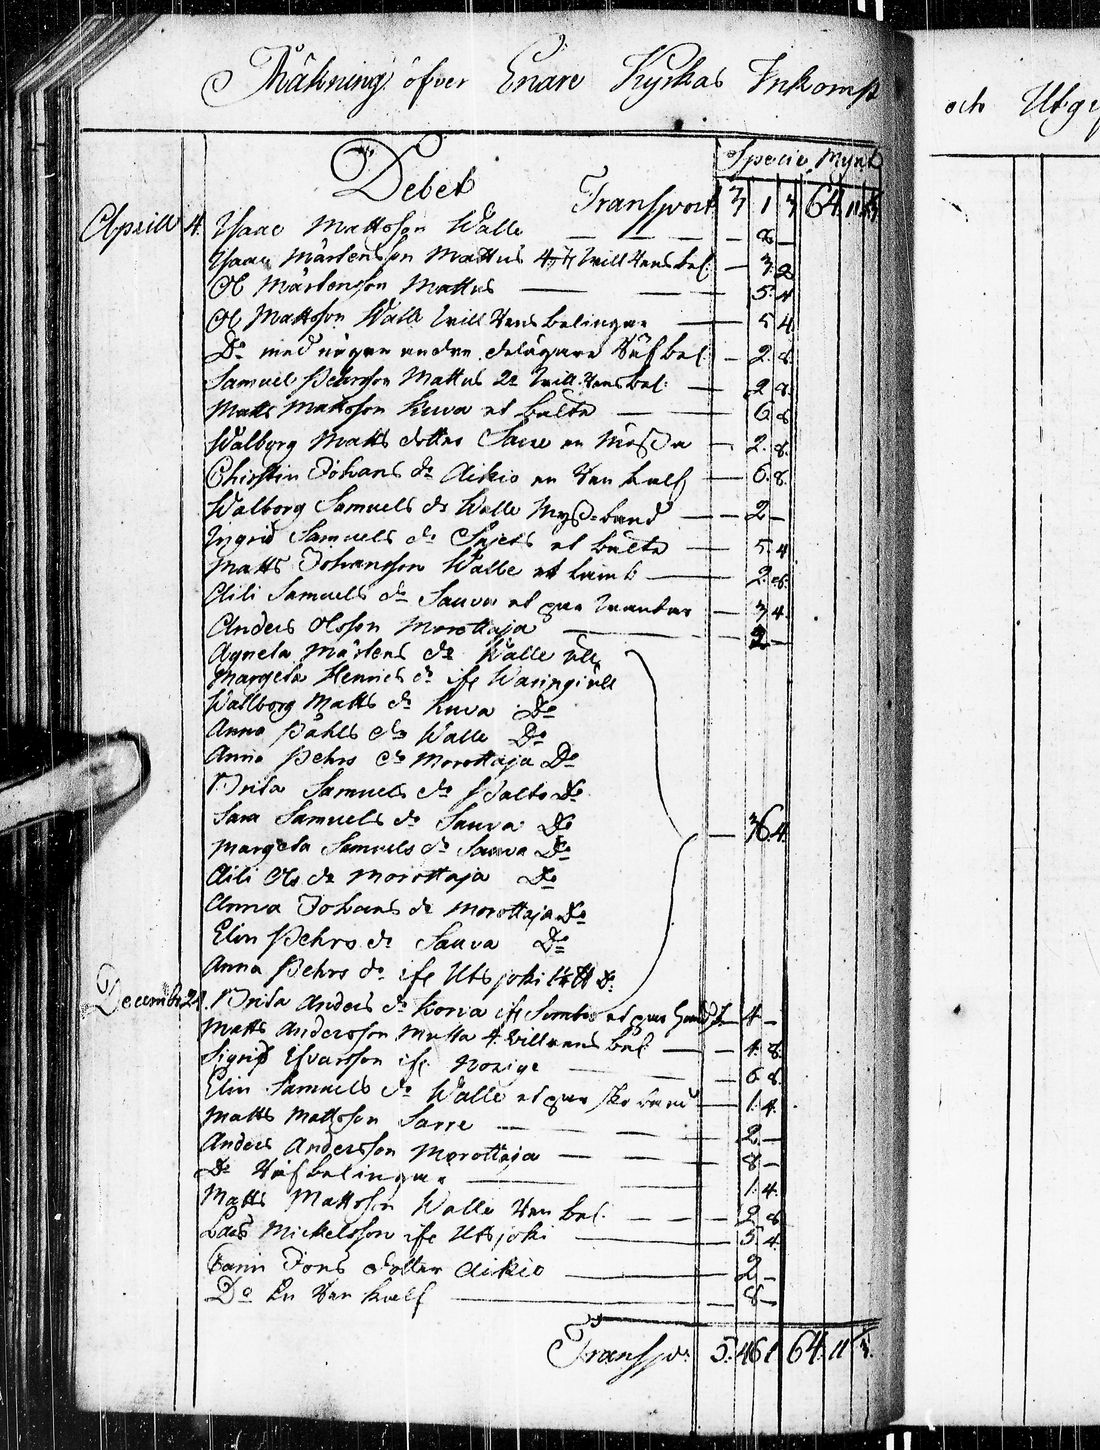 Räkning öfver Enare Kyrkas Inkomst
och Utgif
Specie Mynt
Debet
Transport 3 1 3 64 11
Aprill 4. Isaac Mattsson Walle — 8 —
Isaac Mårtensson Mattus 4 Will Rensbel. — 3. 2
Ol Mårtensson Mattus — 5. 4
Ol Mattsson Walle Vill Rensbelingar — 5 4.
Do med någre andre delägare Räfbel. — 2. 8.
Samuel Pehrsson Mattus 2 Vill Rensbel. — 2 8.
Matts Mattsson Kuva et bälte — 6 8
Walborg Matts dotter Sarre en Mössa — 2. 8.
Chirstin Johans dr Aikio en Ren kalf — 6. 8.
Walborg Samuels dr Walle Myss-band — 2 —
Ingrid Samuels dr Sajets et bälte — 5. 4
Matts Johansson Walle et lamb — 2. 8.
Aili Samuels dr Sauva et par vantar — 3 4.
Anders Olsson Morottaja — 2 —
Agneta Mårtens dr Walle ull
Margeta Henrics dr ifr Waringi ull
Wallborg Matts dr Kuva Do
Anna Påhls dr Walle Do
Anna Pehrs dr Morottaja Do
Brita Samuels dr Padto Do
Sara Samuels dr Sauva Do
— 36. 4.
Margeta Samuels dr Sauva Do
Aili Ols dr Morottaja Do
Anna Johans dr Morottaja Do
Elin Pehrs dr Sauva Do
Anna Pehrs dr ifr Utsjoki Do
Decemb: 24. Brita Anders dr Korva ifr Sombio et par — 4 —
Matts Andersson Mutta 4 Villrens bel — 4. 8.
Sigrid Isvarsson ifr Norige — 6 8.
Elin Samuels dr Walle et par Sko band — 1. 4.
Matts Mattsson Sarre — 2. —
Anders Andersson Morottaja — 8 —
Do Räfbelingar — 1. 4.
Matts Mattsson Walle Ren bel. — 2 8
Lars Mickelsson ifr Utsjoki — 5 4
Karin Jons dotter Aikio — 2 —
Do En Ren kalf — 8 —
Transpr 5. 46 1 64. 11